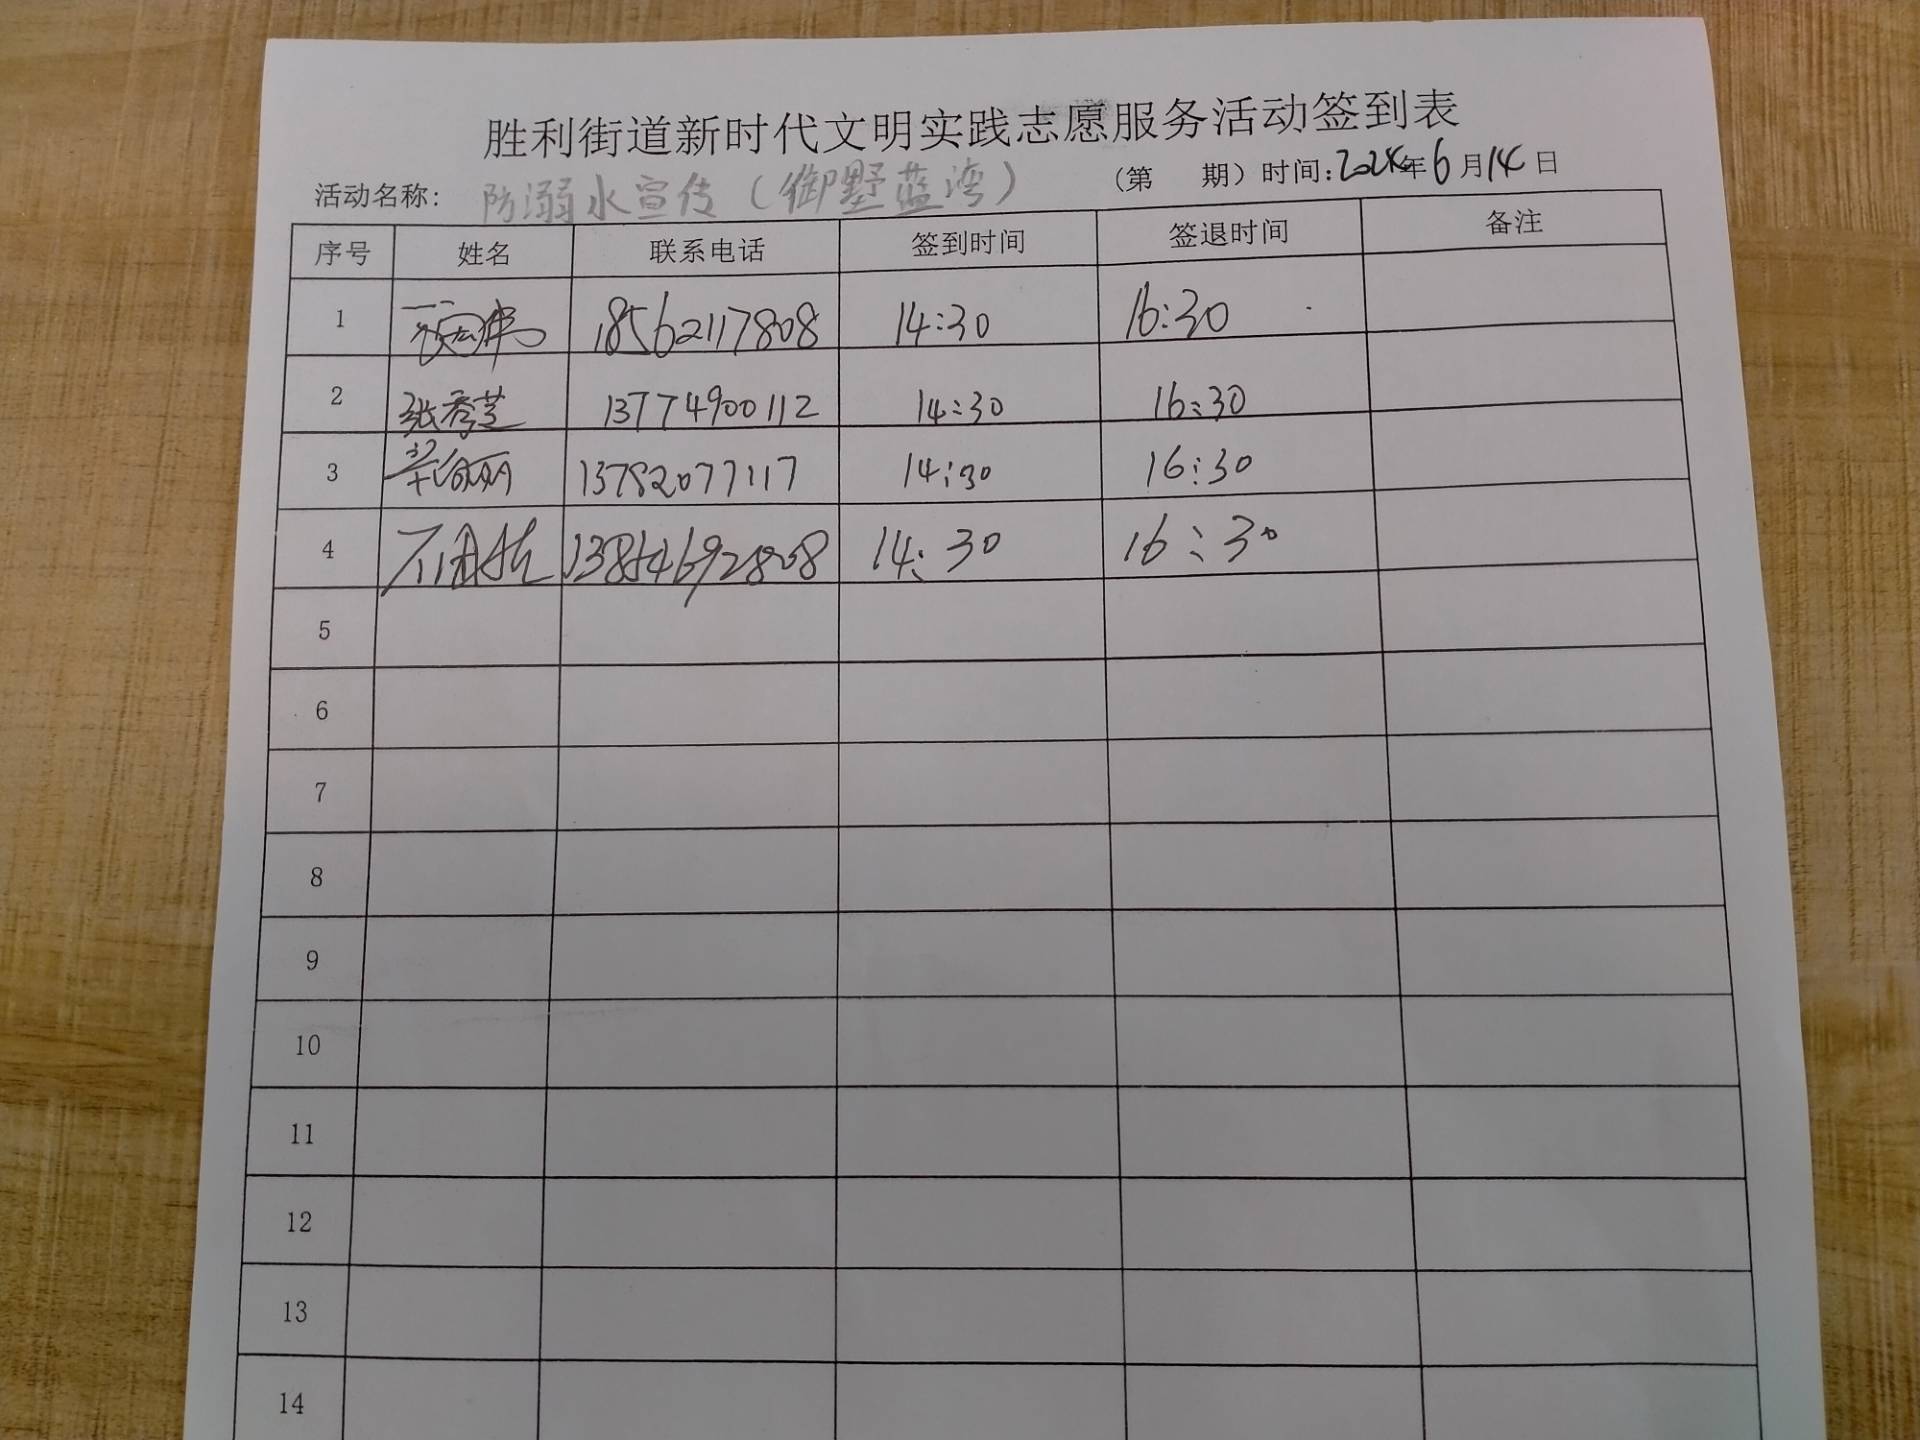 胜利街道新时代文明实践志愿服务活动签到表
活动名称: 防溺水宣传（御墅蓝湾） （第 期）时间: 2024年6月14日
序号 姓名 联系电话 签到时间 签退时间 备注
1 18562117808 14:30 16:30
2 张秀芝 13774900112 14:30 16:30
3 13782077117 14:30 16:30
4 13854692808 14:30 16:30
5
6
7
8
9
10
11
12
13
14